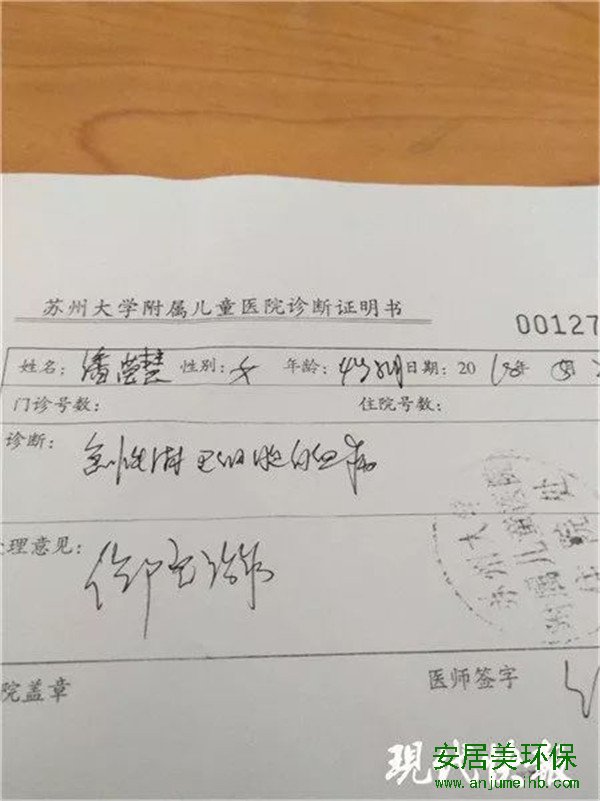 苏州大学附属儿童医院诊断证明书
00127
姓名: 潘莹慧 性别: 女 年龄: 4岁 日期: 2018年
门诊号数: 住院号数:
诊断: 急性淋巴细胞白血病
处理意见: 住院治疗
苏州大学
附属儿童医院
住院
院盖章 医师签字
现代快报
安居美环保
www.anjumeihb.com